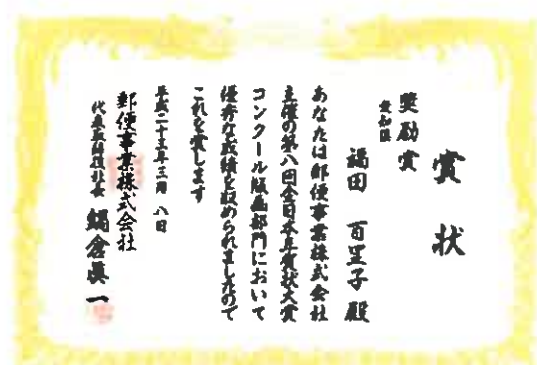 賞状
奨励賞
愛知県
福田 百里子 殿
あなたは郵便事業株式会社
主催の第八回全日本年賀状大賞
コンクール版画部門において
優秀な成績を収められましたので
これを賞します
平成二十三年三月 八日
郵便事業株式会社
代表取締役社長 鍋倉眞一